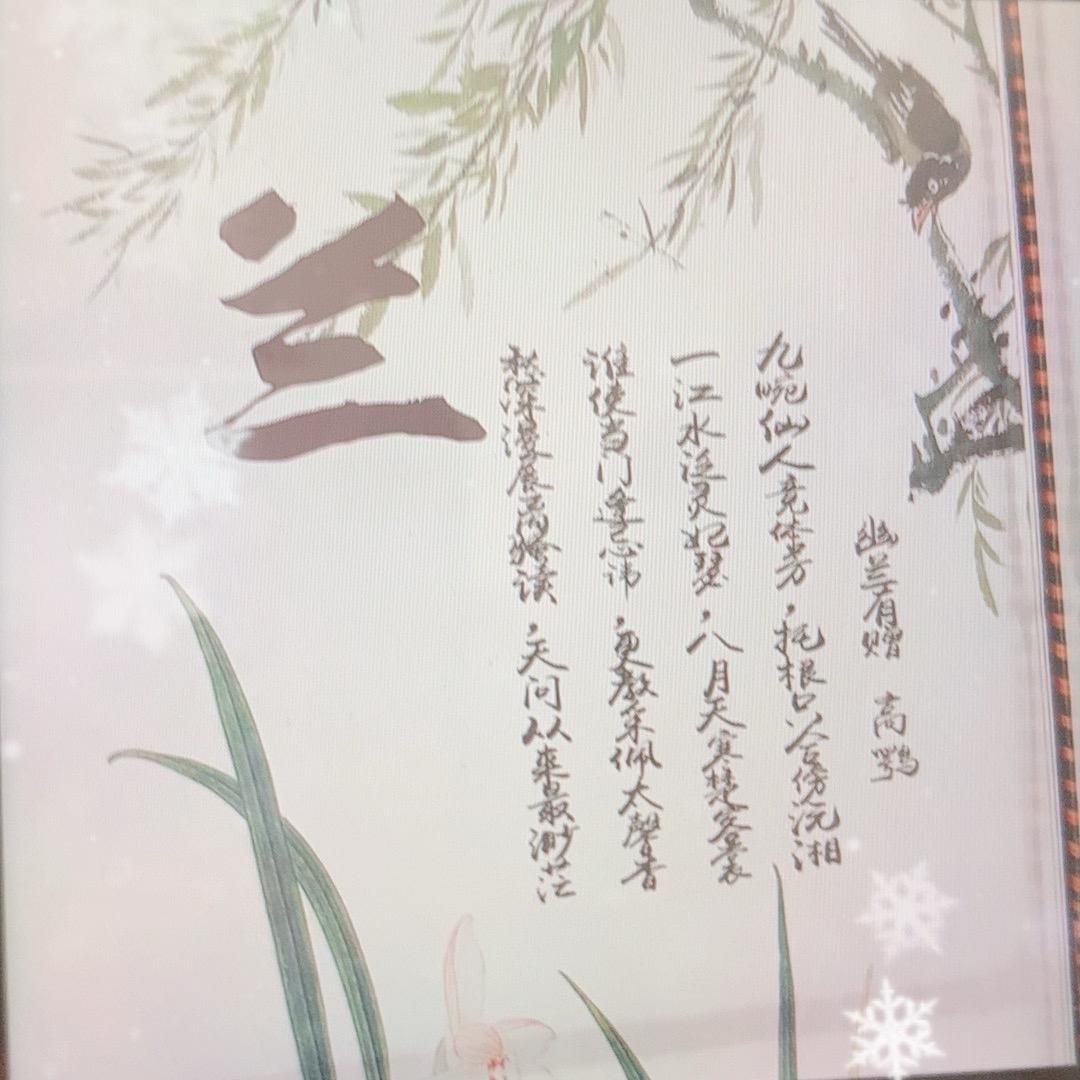 兰
幽兰有赠 高鹗
九畹仙人竞体芳，托根只合傍沅湘
一江水泛灵妃瑟，八月天寒楚客裳
谁使当门逢忌讳，更教采佩太馨香
秋深漫展离骚读，天问从来最渺茫